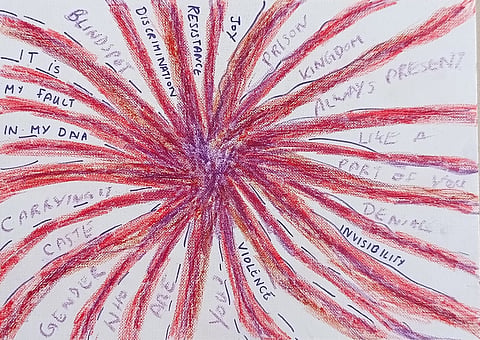 BLINDSPOT
DISCRIMINATION
RESISTANCE
JOY
PRISON
KINGDOM
ALWAYS PRESENT
LIKE A
PART OF YOU
DENIAL
INVISIBILITY
VIOLENCE
YOU?
ARE
WHO
GENDER
CASTE
CARRYING IT
IN MY DNA
MY FAULT
IT IS